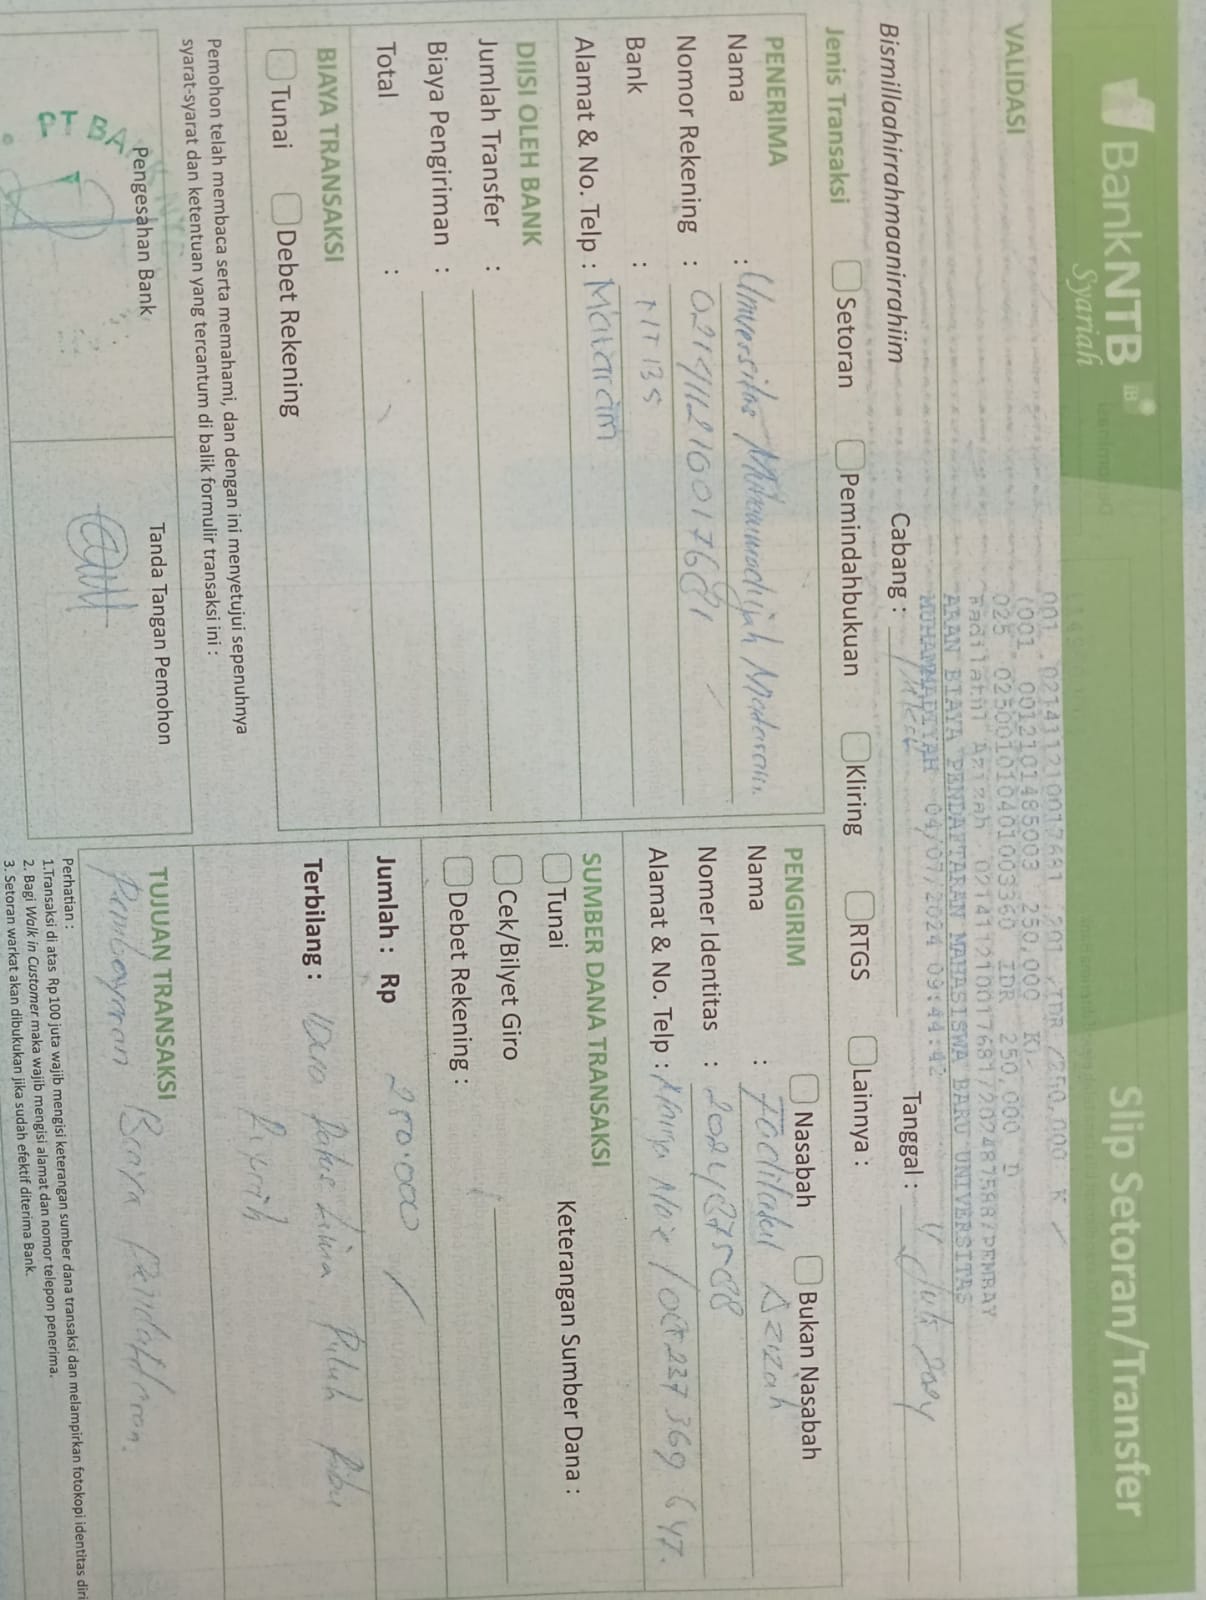 BankNTB
Syariah
Slip Setoran/Transfer
VALIDASI
001 021411210017681 201 IDR 250,000 K
(001 0012101485003 250,000 K)
025 025001010401003360 IDR 250,000 D
Fadilatul Azizah 0214112100176817202487588/PEMBAY
ARAN BIAYA PENDAFTARAN MAHASISWA BARU UNIVERSITAS
MUHAMMADIYAH 04/07/2024 09:44:42
Bismillaahirrahmaanirrahiim
Cabang :
Tanggal : 4 Juli 2024
Jenis Transaksi
Setoran
Pemindahbukuan
Kliring
RTGS
Lainnya :
PENERIMA
Nama : Universitas Muhammadiyah Mataram
Nomor Rekening : 021411210017681
Bank :
Alamat & No. Telp : Mataram
DIISI OLEH BANK
Jumlah Transfer :
Biaya Pengiriman :
Total :
BIAYA TRANSAKSI
Tunai
Debet Rekening
Pemohon telah membaca serta memahami, dan dengan ini menyetujui sepenuhnya
syarat-syarat dan ketentuan yang tercantum di balik formulir transaksi ini :
Pengesahan Bank
PT BA
Tanda Tangan Pemohon
PENGIRIM
Nasabah
Bukan Nasabah
Nama : Fadilatul Azizah
Nomer Identitas : 202487588
Alamat & No. Telp : 087 237 369 647.
SUMBER DANA TRANSAKSI
Tunai
Keterangan Sumber Dana :
Cek/Bilyet Giro
Debet Rekening :
Jumlah : Rp 250.000
Terbilang : Dua Ratus Lima Puluh Ribu
Rupiah
TUJUAN TRANSAKSI
Pembayaran Biaya Pendaftaran.
Perhatian :
1.Transaksi di atas Rp 100 juta wajib mengisi keterangan sumber dana transaksi dan melampirkan fotokopi identitas diri
2. Bagi Walk in Customer maka wajib mengisi alamat dan nomor telepon penerima.
3. Setoran warkat akan dibukukan jika sudah efektif diterima Bank.